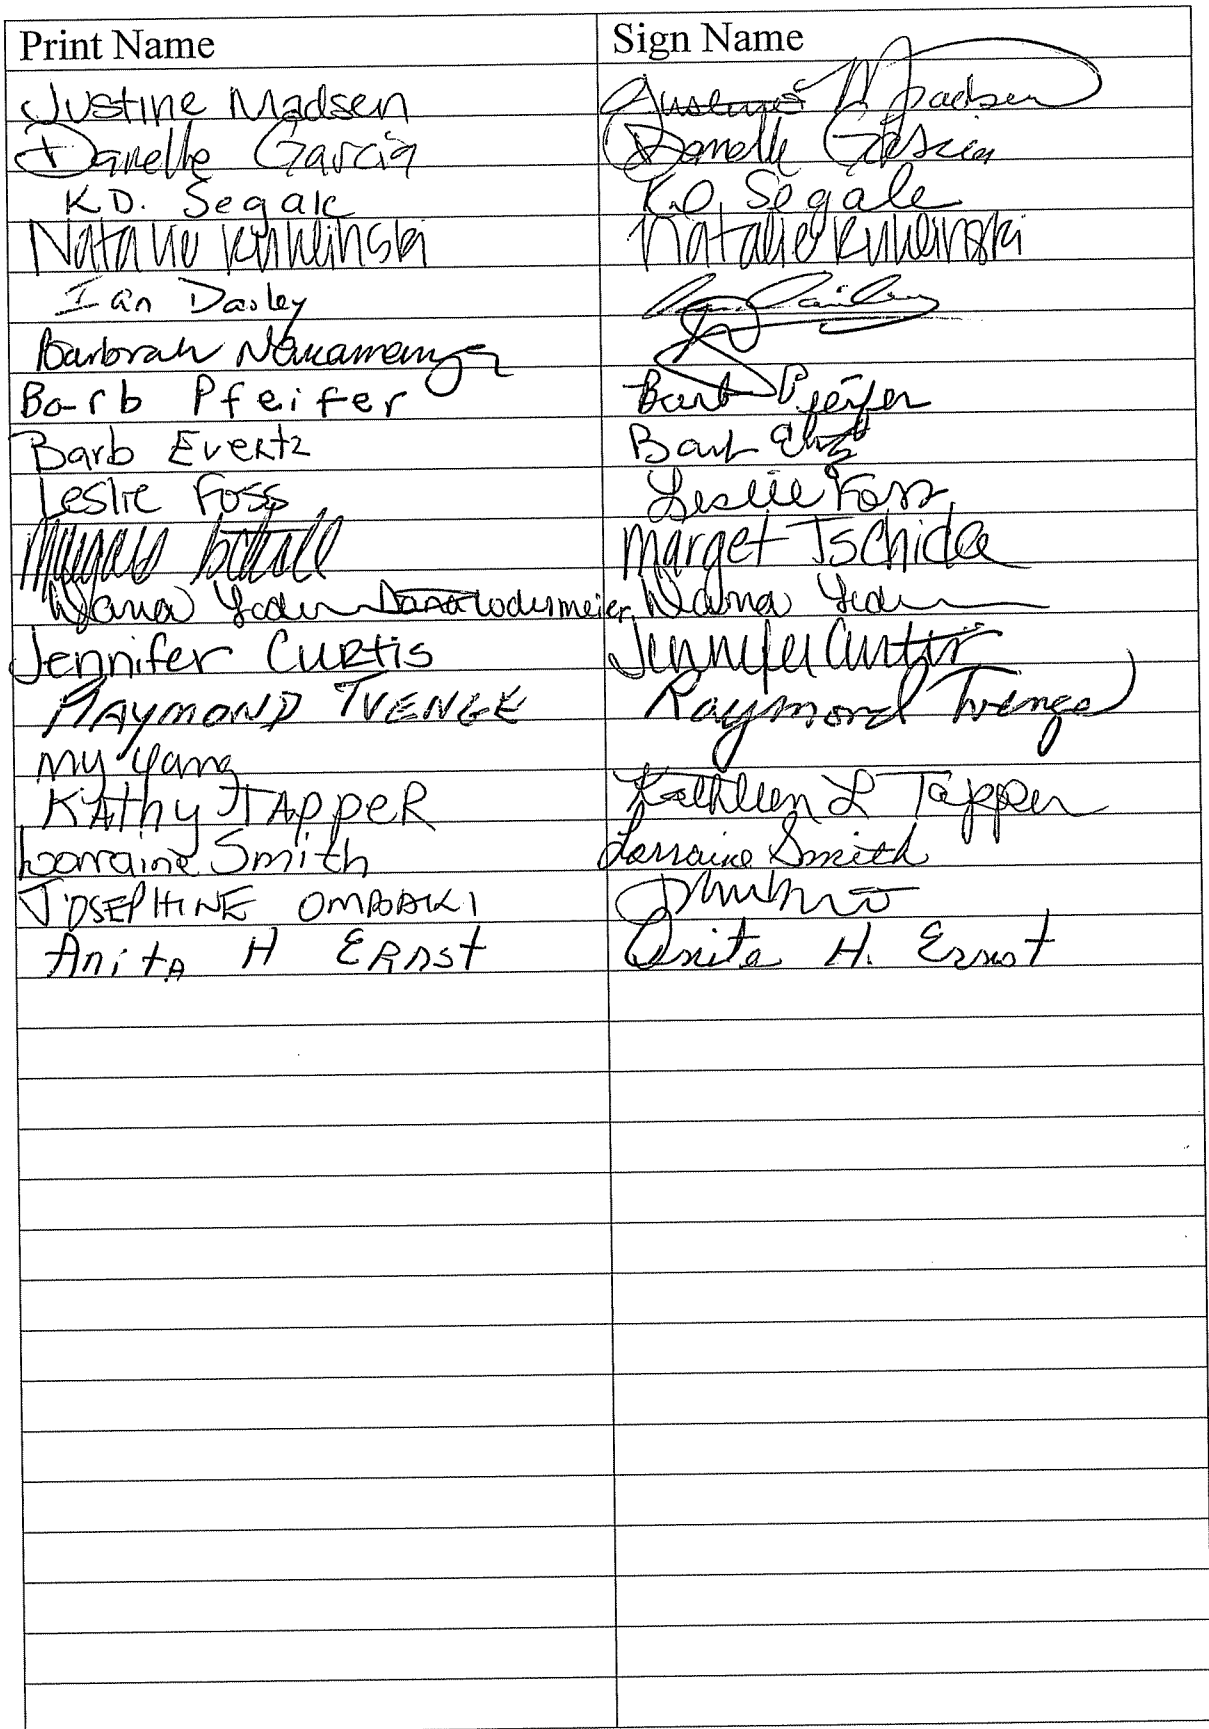 Print Name Sign Name
Justine Madsen Justine M Madsen
Danelle Garcia Danelle Garcia
K.D. Segale K.D. Segale
Natalie Kuklinski Natalie Kuklinski
Ian Dailey Ian Dailey
Barbrah
Barb Pfeifer Barb Pfeifer
Barb Evertz Barb
Leslie Foss Leslie Foss
Marget Tschida
Dana Lodermeier Dana
Jennifer Curtis Jennifer Curtis
RAYMOND TVENGE Raymond Tvenge
My Yang
KAthy TAppeR Kathleen L Tapper
Lorraine Smith Lorraine Smith
JOSEPHINE OMBAKI
AnitA H ERnst Anita H. Ernst